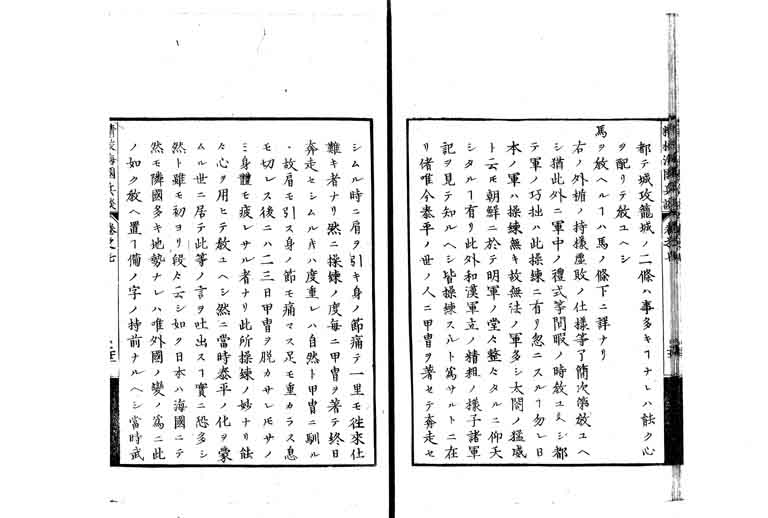 都テ城攻籠城ノ二條ハ事多キヿナレハ能ク心
ヲ配リテ放ユヘシ
馬ヲ放ヘルヿハ馬ノ條下ニ詳ナリ
右ノ外楯ノ持様虚敗ノ仕様等了簡次第放ユヘ
シ猶此外ニ軍中ノ禮式等閑暇ノ時放ユヘシ都
テ軍ノ巧拙ハ此操練ニ有リ忽ニスルヿ勿レ日
本ノ軍ハ操練無キ故無法ノ軍多シ太閤ノ猛威
ト云モ朝鮮ニ於テ明軍ノ堂々整々タルニ仰天
シタルヿ有リ此外和漢軍立ノ精粗ノ様子諸軍
記ヲ見テ知ルヘシ皆操練スルト為サルトニ在
リ偖唯今泰平ノ世ノ人ニ甲冑ヲ著セテ奔走セ
精校海國兵談 卷之七
シムル時ニ肩ヲ引キ身ノ節痛テ一里モ往來仕
難キ者ナリ然ニ操練ノ度每ニ甲冑ヲ著テ終日
奔走セシムル𪜈ハ度重レハ自然ト甲冑ニ馴ル
故肩モ引ス身ノ節モ痛マス足モ重カラス息
モ切レス後ニハ二三日甲冑ヲ脱カサレ𪜈サノ
ミ身體モ疲レサル者ナリ此所操練ノ妙ナリ能
々心ヲ用ヒテ放ユヘシ然ニ當時泰平ノ化ヲ蒙
ムル世ニ居テ此等ノ言ヲ吐出スヿ實ニ恐多シ
然ト雖モ初ヨリ段々云シ如ク日本ハ海國ニテ
然モ隣國多キ地勢ナレハ唯外國ノ變ノ為ニ此
ノ如ク放ヘ置ヿ備ノ字ノ持前ナルヘシ當時武